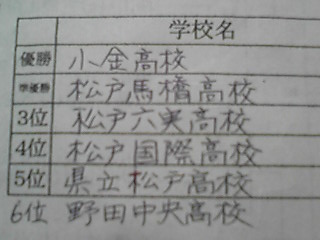 学校名
優勝 小金高校
準優勝 松戸馬橋高校
3位 松戸六実高校
4位 松戸国際高校
5位 県立松戸高校
6位 野田中央高校